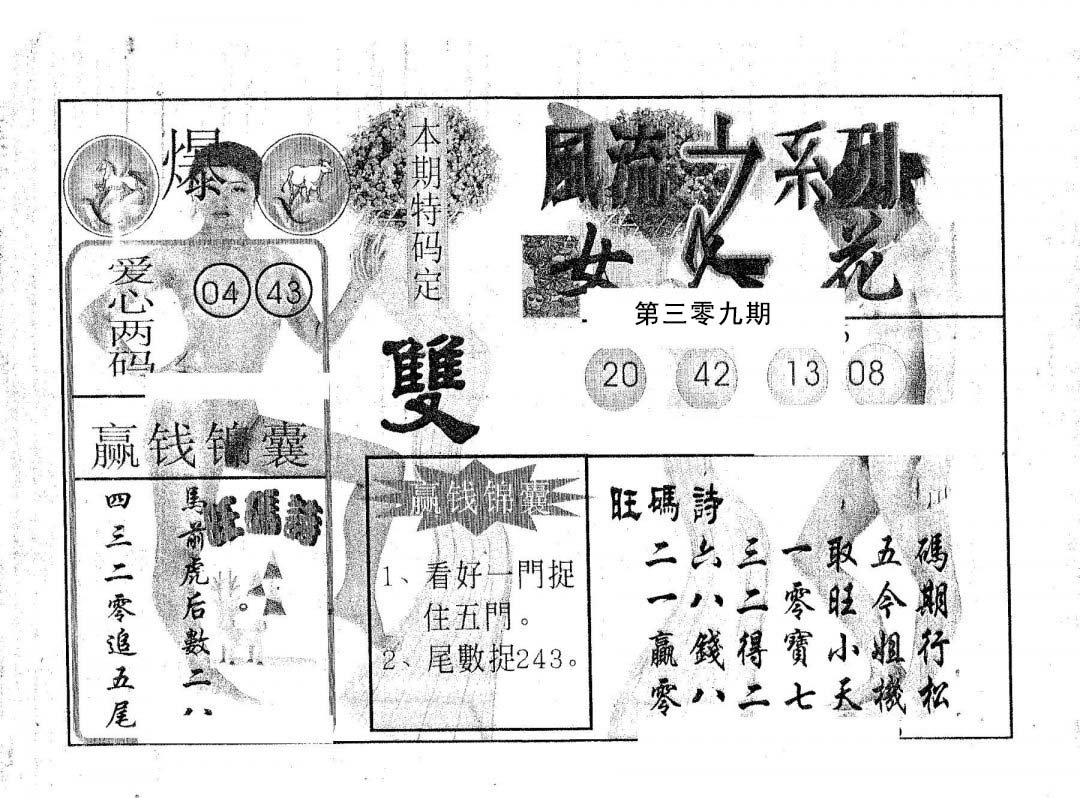 爆
本期特码定
雙
風流之系列
女人花
第三零九期
20 42 13 08
爱心两码
04 43
赢钱锦囊
旺碼詩
馬前虎后數二八
四三二零追五尾
赢钱锦囊
1、看好一門捉
住五門。
2、尾數捉243。
旺碼詩
二六三一取五碼
一八二零旺今期
贏錢得寶小姐行
零八二七天機松